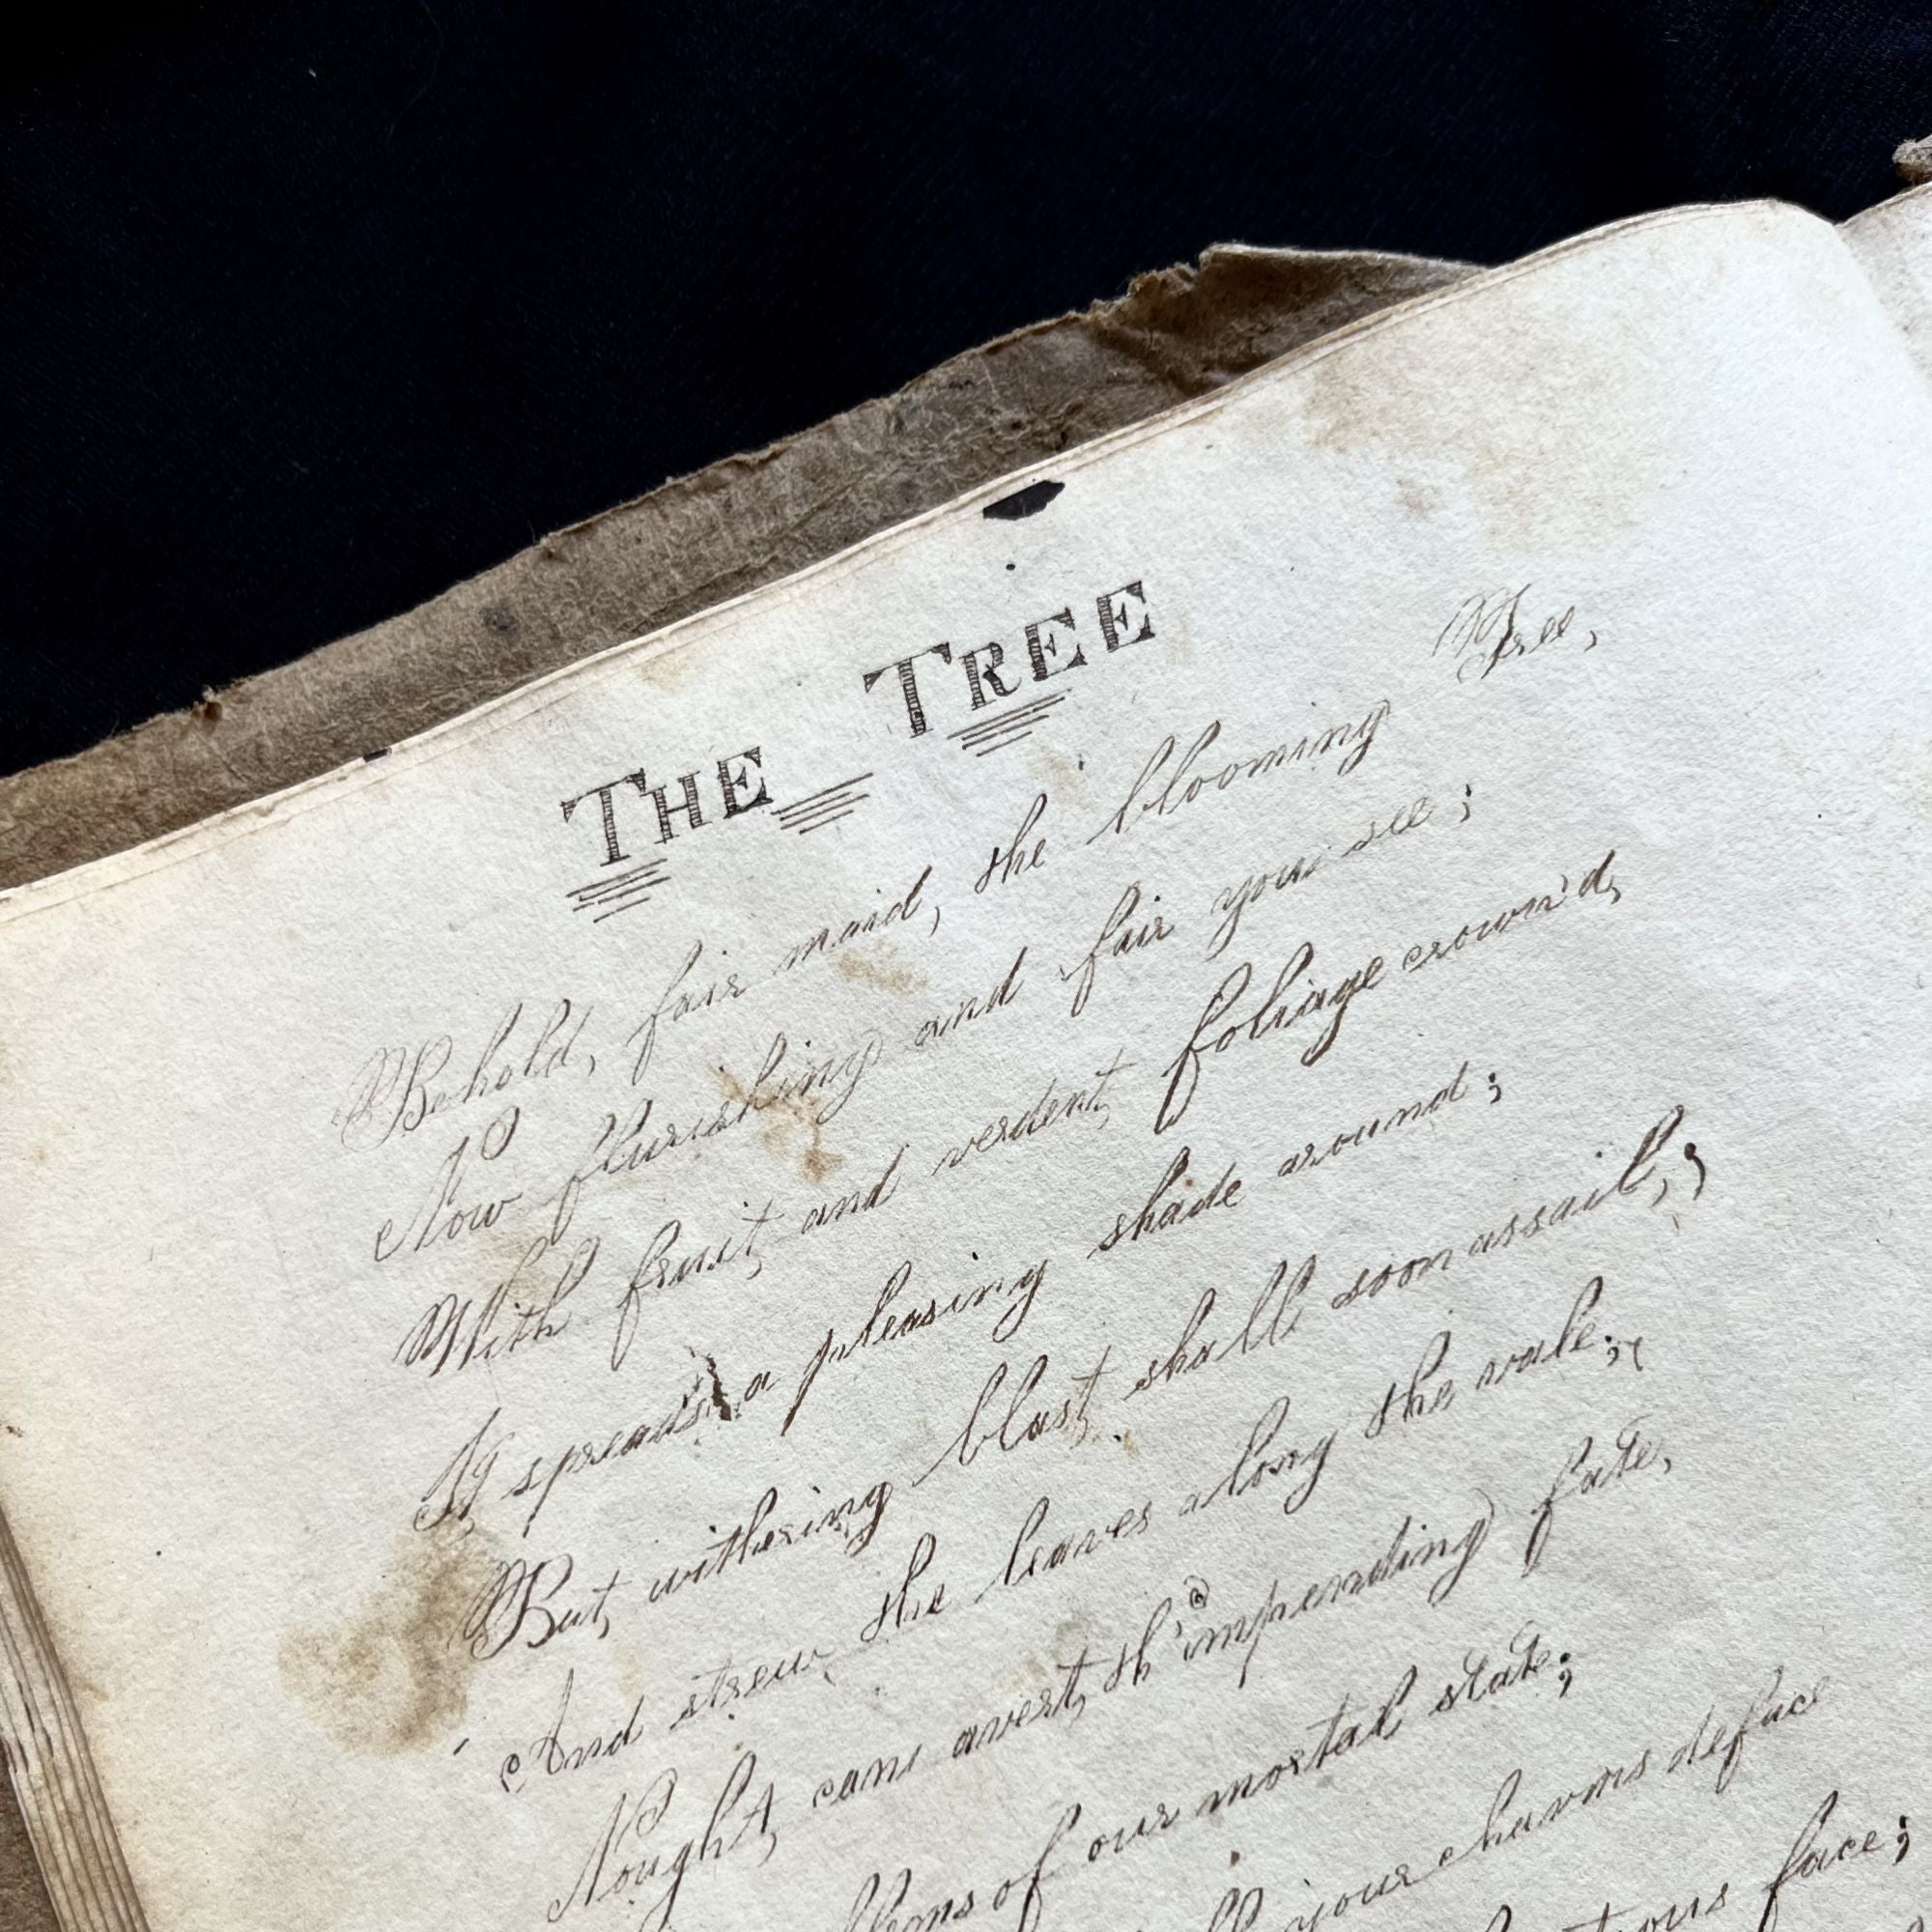 THE TREE
Behold, fair maid, the blooming Tree,
Now flurishing and fair you see;
With fruit and verdent foliage crown'd,
It spreads a pleasing shade around;
But withering blast shall soon assail,;
And strew the leaves along the vale;
Nought can avert th' impending fate,
of our mortal state;
your charms deface
face;